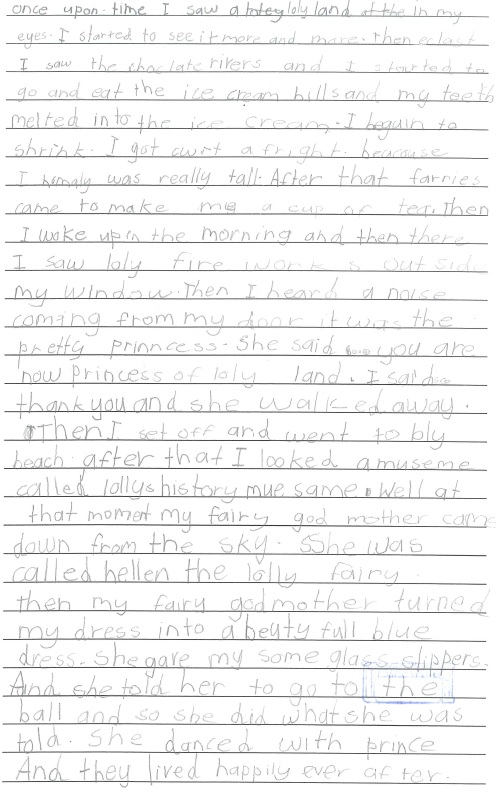 once upon time I saw a loly land at the in my
eyes. I started to see it more and more. Then
I saw the choclate rivers and I started to
go and eat the ice cream hills and my teeth
melted in to the ice cream. I beguin to
shrink. I got cwit a fright. hearause
I homaly was really tall. After that farries
came to make me a cup of tea. Then
I woke up in the morning and then there
I saw loly fire works out side
my window. Then I heard a noise
coming from my door it was the
pretty prinncess. She said you are
now Princess of loly land. I said
thankyou and she walked away.
Then I set off and went to bly
beach. after that I looked a museme
called lollys history mue same. Well at
that moment my fairy god mother came
down from the sky. She was
called hellen the lolly fairy.
then my fairy godmother turned
my dress into a beuty full blue
dress. She gave my some glass slippers.
And she told her to go to the
ball and so she did what she was
told. She danced with prince
And they lived happily ever after.